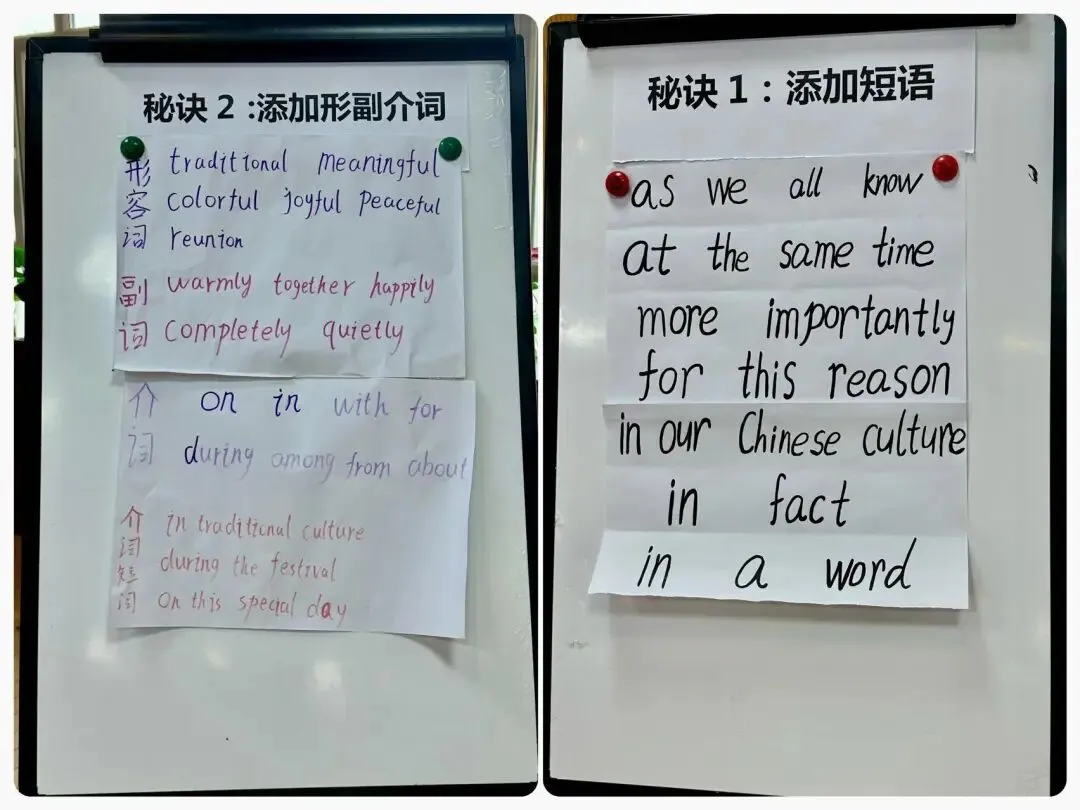 秘诀 2 :添加形副介词
形 traditional meaningful
容 colorful joyful peaceful
词 reunion
副 warmly together happily
词 completely quietly
介 on in with for
词 during among from about
介 in traditional culture
词 during the festival
短
词 on this special day
秘诀 1：添加短语
as we all know
at the same time
more importantly
for this reason
in our Chinese culture
in fact
in a word